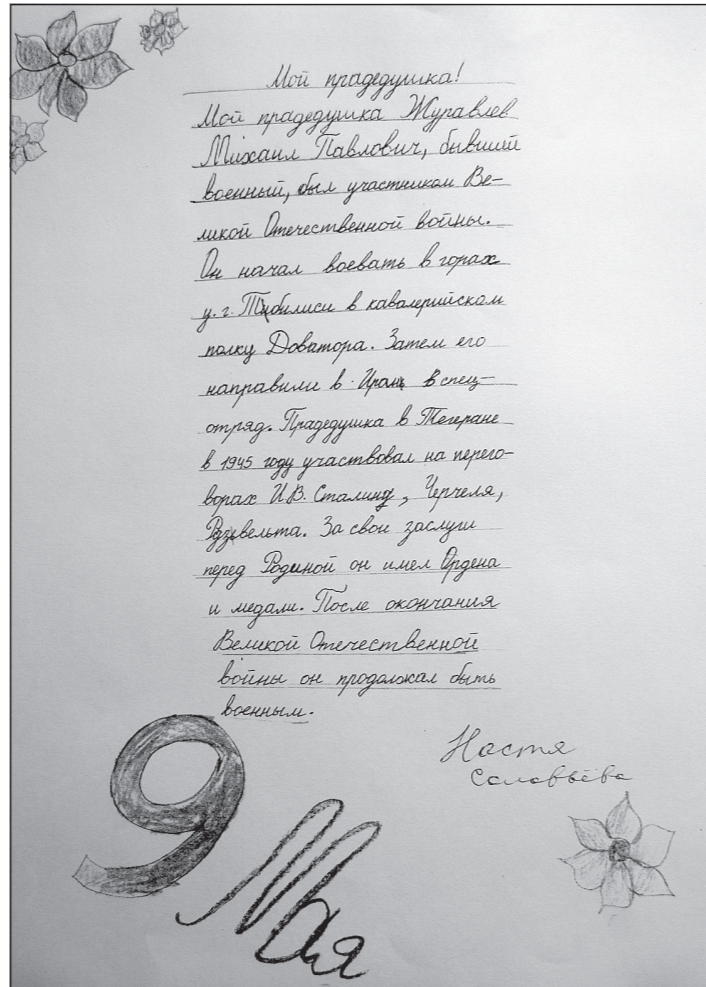 Мой прадедушка!
Мой прадедушка Журавлев
Михаил Павлович, бывший
военный, был участником Ве-
ликой Отечественной войны.
Он начал воевать в горах
у. г. Тбилиси в кавалерийском
полку Доватора. Затем его
направили в Иран в спец-
отряд. Прадедушка в Тегеране
в 1945 году участвовал на перего-
ворах И.В. Сталина, Черчеля,
Рузвельта. За свои заслуги
перед Родиной он имел Ордена
и медали. После окончания
Великой Отечественной
войны он продолжал быть
военным.
Настя
Соловьёва
9 Мая